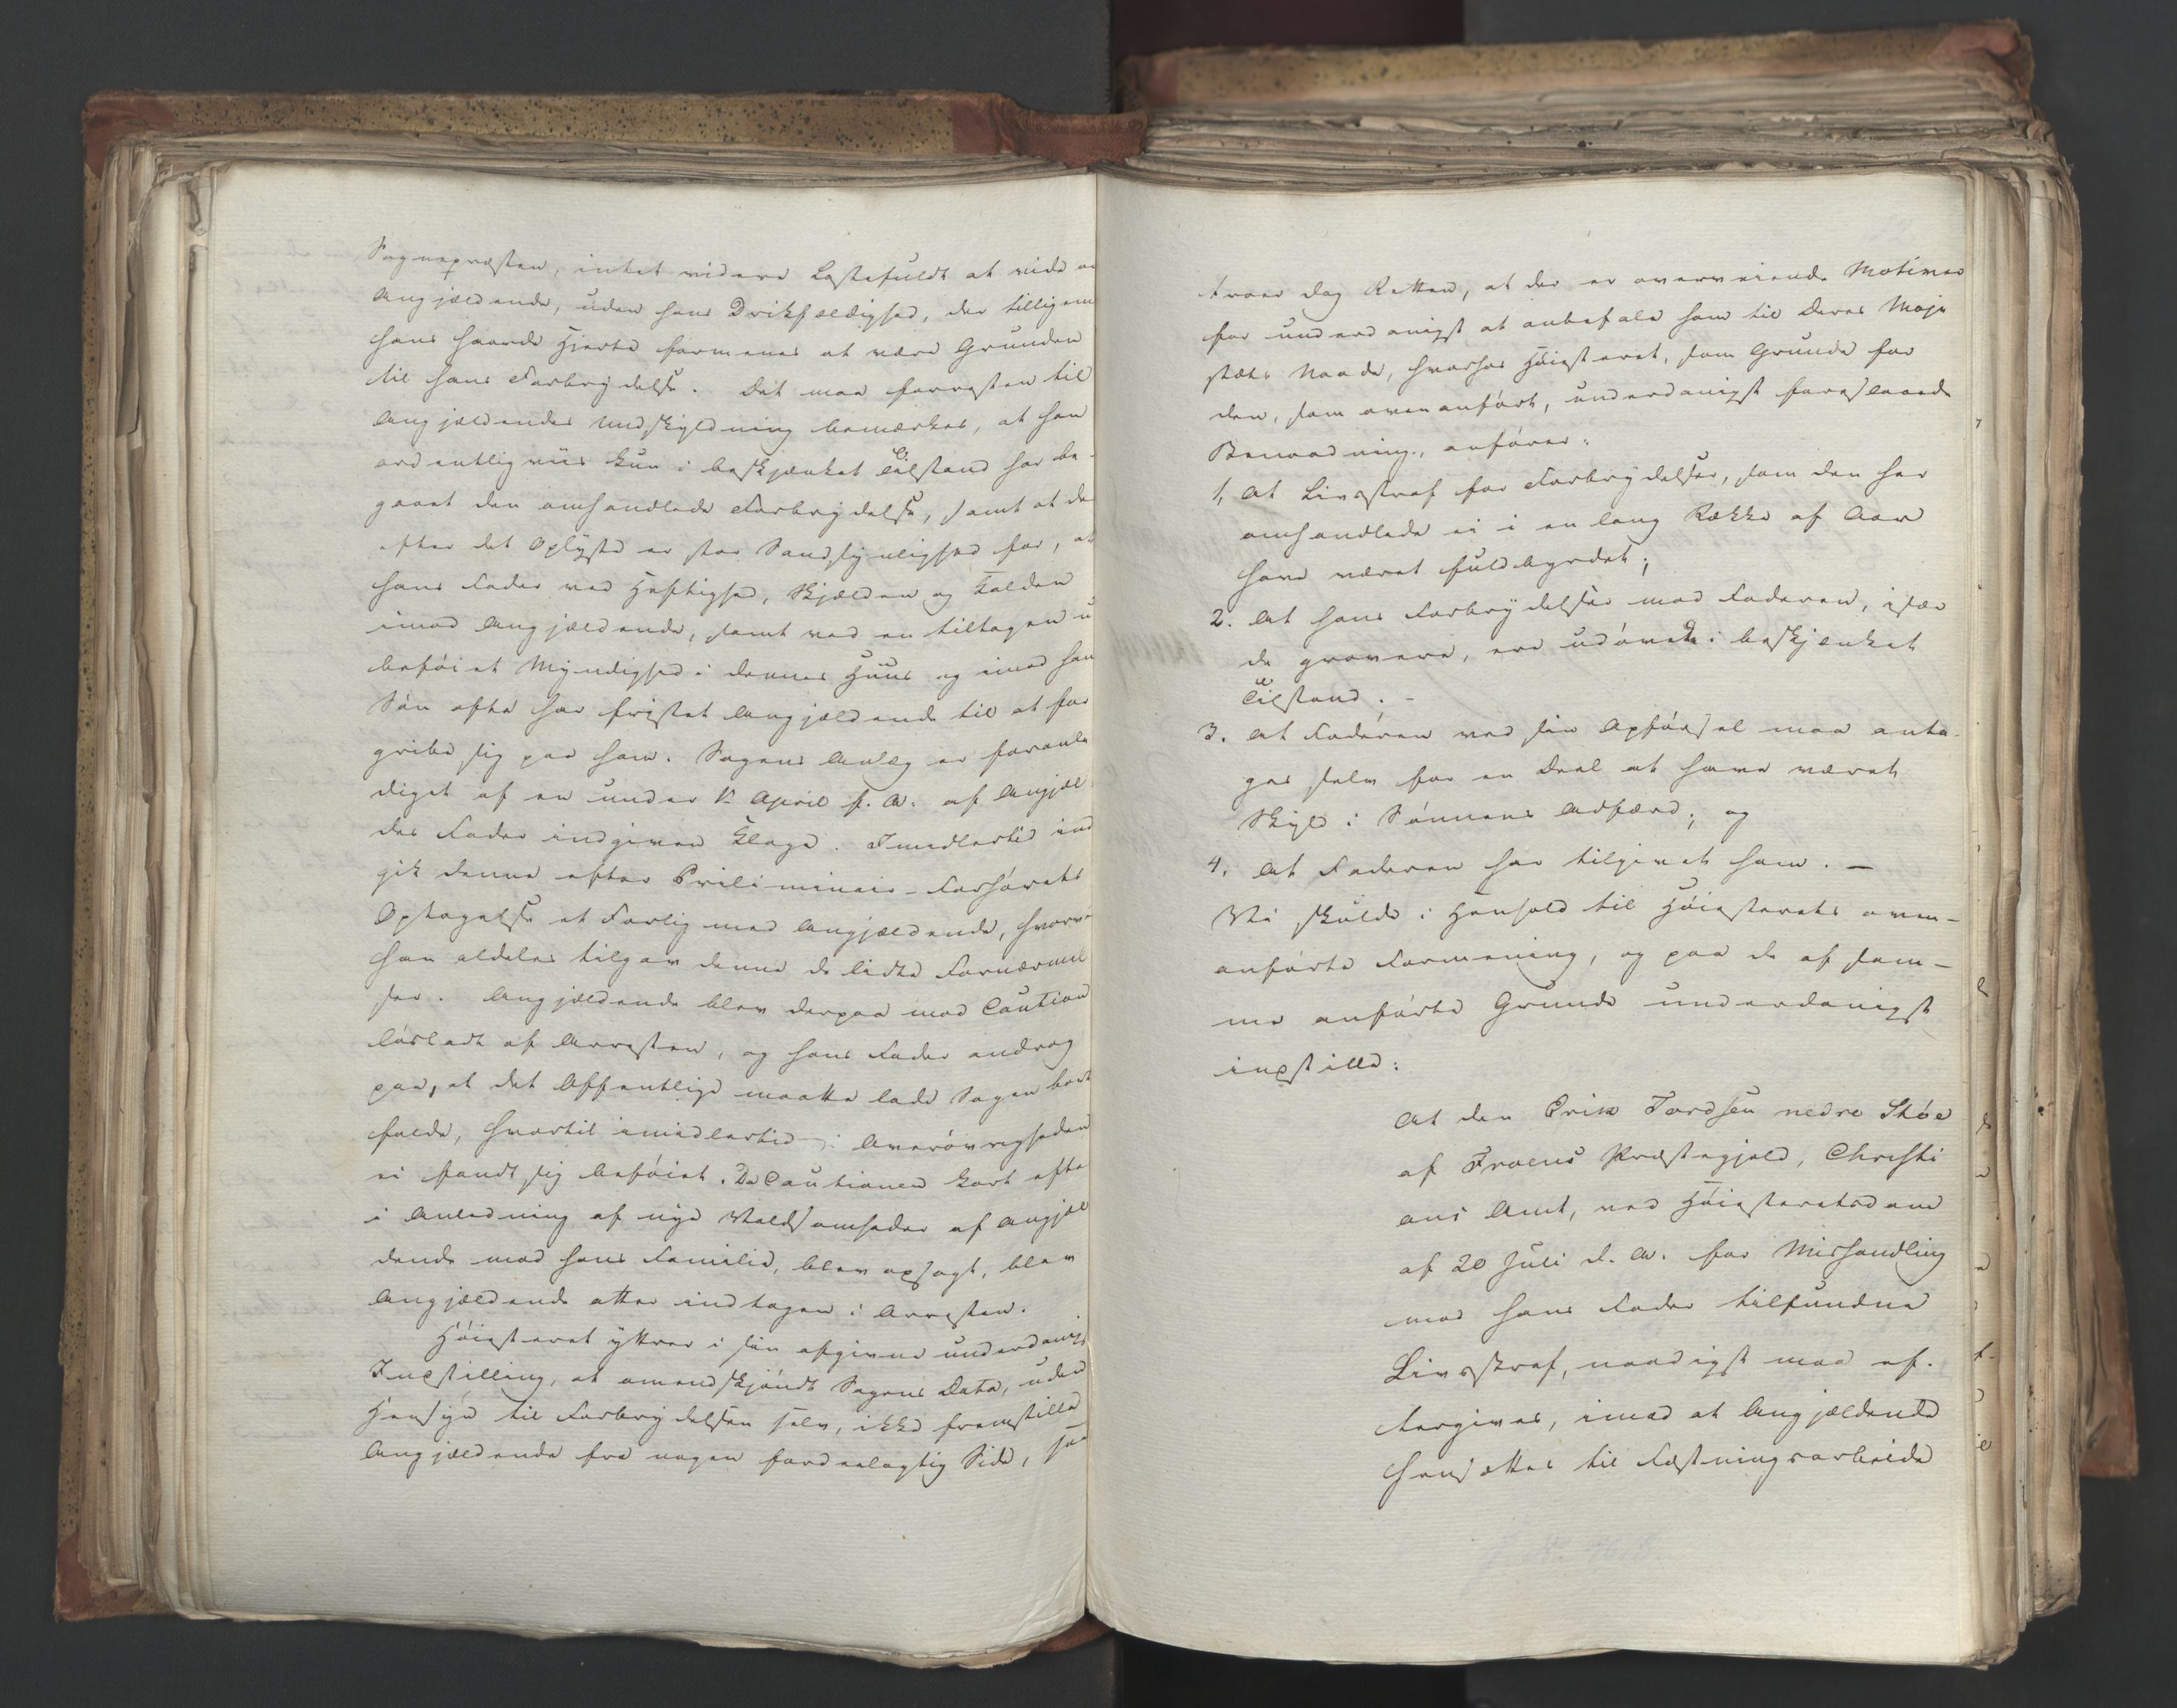 Sognepræsten, intet videre Lastefuldt at vide om
Angjældende, uden hans Drikfældighed, der tilligem
hans haarde Hjerte formenes at være Grunden
til hans Forbrydelse. Det maa forresten til
Angjældendes Undskyldning bemærkes, at han
ordentligviis kun i beskjænket Tilstand har be-
gaaet den omhandlede Forbrydelse, samt at der
efter det Oplyste er stor Sandsynlighed for, at
hans Fader ved Heftighed, Skjælden og Kalden
imod Angjældende, samt ved en tiltagen u
beføiet Myndighed i dennes Huus og imod han
Søn ofte har fristet Angjældende til at for
gribe sig paa ham. Sagens Anlæg er foranle
diget af en under 12 April f. A. af Angjæl
des Fader indgiven Klage. Imidlertid ind
gik denne efter Præliminair-Forhørets
Optagelse et Forlig med Angjældende, hvorved
han aldeles tilgav denne de lidte Fornærmel
ser. Angjældende blev derpaa mod Caution
løsladt af Arresten, og hans Fader androg
paa, at det Offentlige maatte lade Sagen bort
falde, hvortil imidlertid Overøvrigheden
ei fandt sig beføiet. Da Cautionen kort efter
i Anledning af nye Voldsomheder af Angjæl
dende mod hans Familie, blev opsagt, blev
Angjældende atter indtagen i Arresten.
Høiesteret yttrer i sin afgivne underdanig
Indstilling, at omendskjøndt Sagens Data, uden
Hensyn til Forbrydelsen selv, ikke fremstille
Angjældende fra nogen fordeelagtig Side, saa
troer dog Retten, at der er overveiende Motiver
for underdanigst at anbefale ham til Deres Maje
stæts Naade, hvorhos Høiesteret, som Grunde for
den, som ovenanført, underdanigst foreslaaede
Benaadning, anfører:
1, At Livsstraf for Forbrydelser, som den her
omhandlede ei i en lang Række af Aar
have været fuldbyrdet;
2. At hans Forbrydelser mod Faderen, især
de grovere, ere udøvede i beskjænket
Tilstand. -
3. At Faderen ved sin Opførsel maa anta-
ges selv for en Deel at have været
Skyld i Sønnens Adfærd; og
4, At Faderen har tilgivet ham. -
Vi skulde i Henhold til Høiesterets oven-
anførte Formening, og paa de af sam-
me anførte Grunde underdanigst
indstille:
At den Erik Tordsen nedre Støe
af Froens Præstegjeld, Christi
ans Amt, ved Høiesteretsdom
af 20 Juli d. A. for Mishandling
mod hans Fader tilfundne
Livsstraf, naadigst maa ef-
tergives, imod at Angjældende
hensættes til Fæstningsarbeide